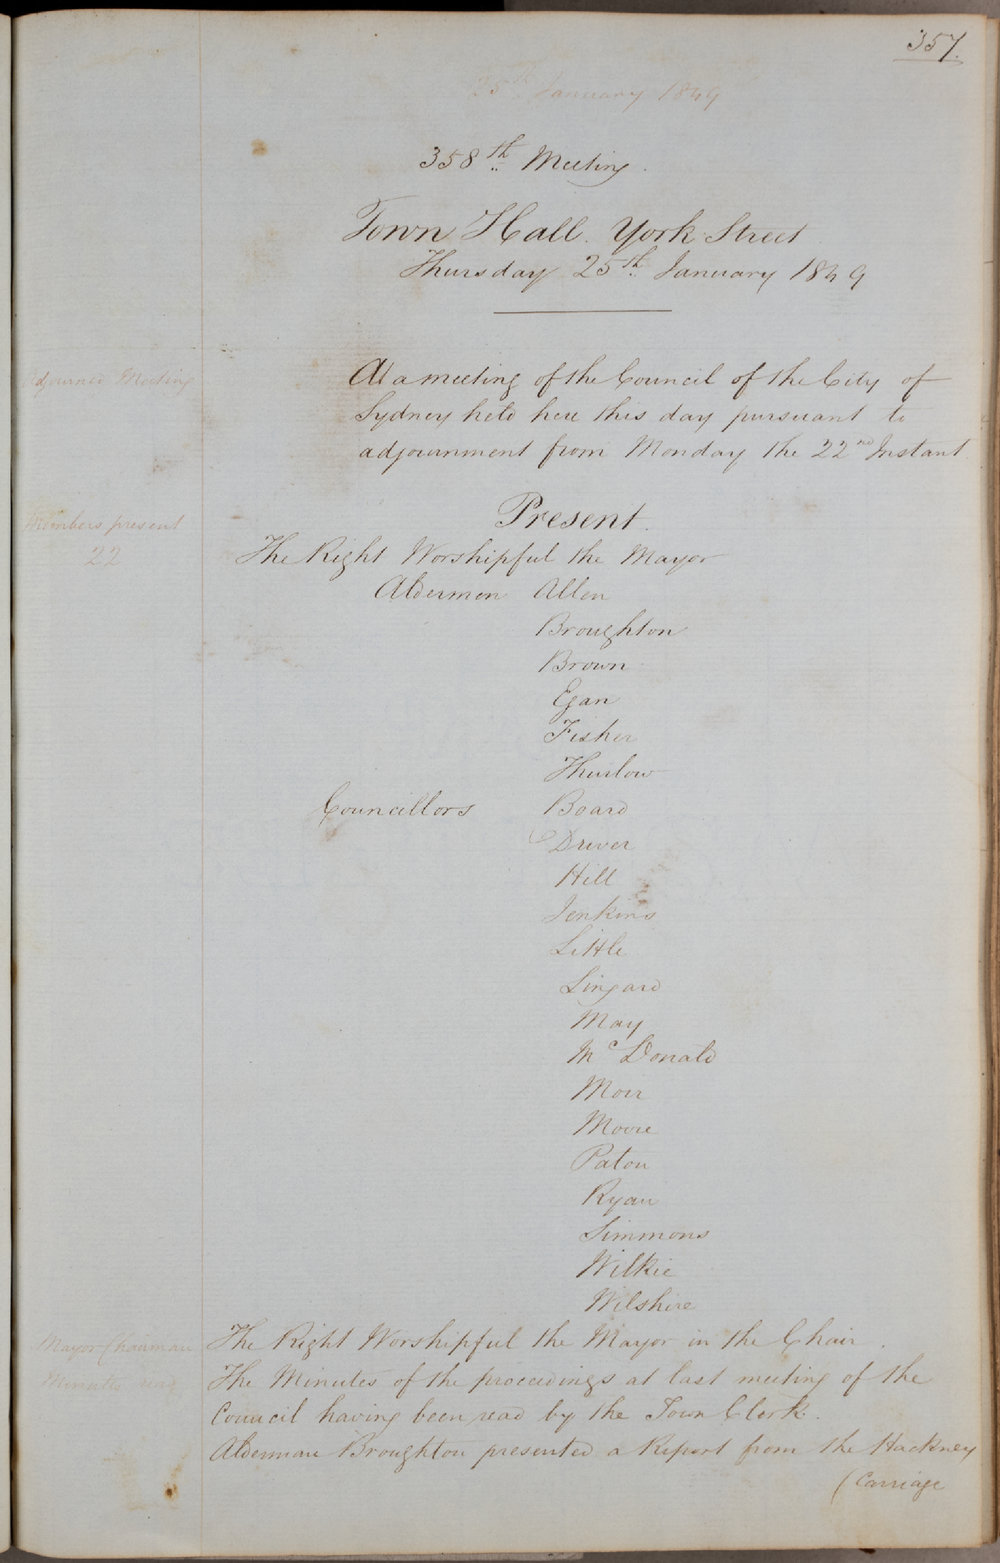 357.
25th January 1849
358th Meeting.
Town Hall. York Street
Thursday 25th January 1849
Adjourned Meeting
At a meeting of the Council of the City of
Sydney held here this day pursuant to
adjournment from Monday the 22nd Instant
Present.
Members present
22
The Right Worshipful the Mayor
Aldermen Allen
Broughton
Brown
Egan
Fisher
Thurlow
Councillors Beard
Driver
Hill
Jenkins
Little
Lingard
May
McDonald
Moir
Moore
Paton
Ryan
Simmons
Wilkie
Wilshire
Mayor Chairman
The Right Worshipful the Mayor in the Chair.
Minutes read
The Minutes of the proceedings at last meeting of the
Council having been read by the Town Clerk.
Alderman Broughton presented a Report from the Hackney
(Carriage